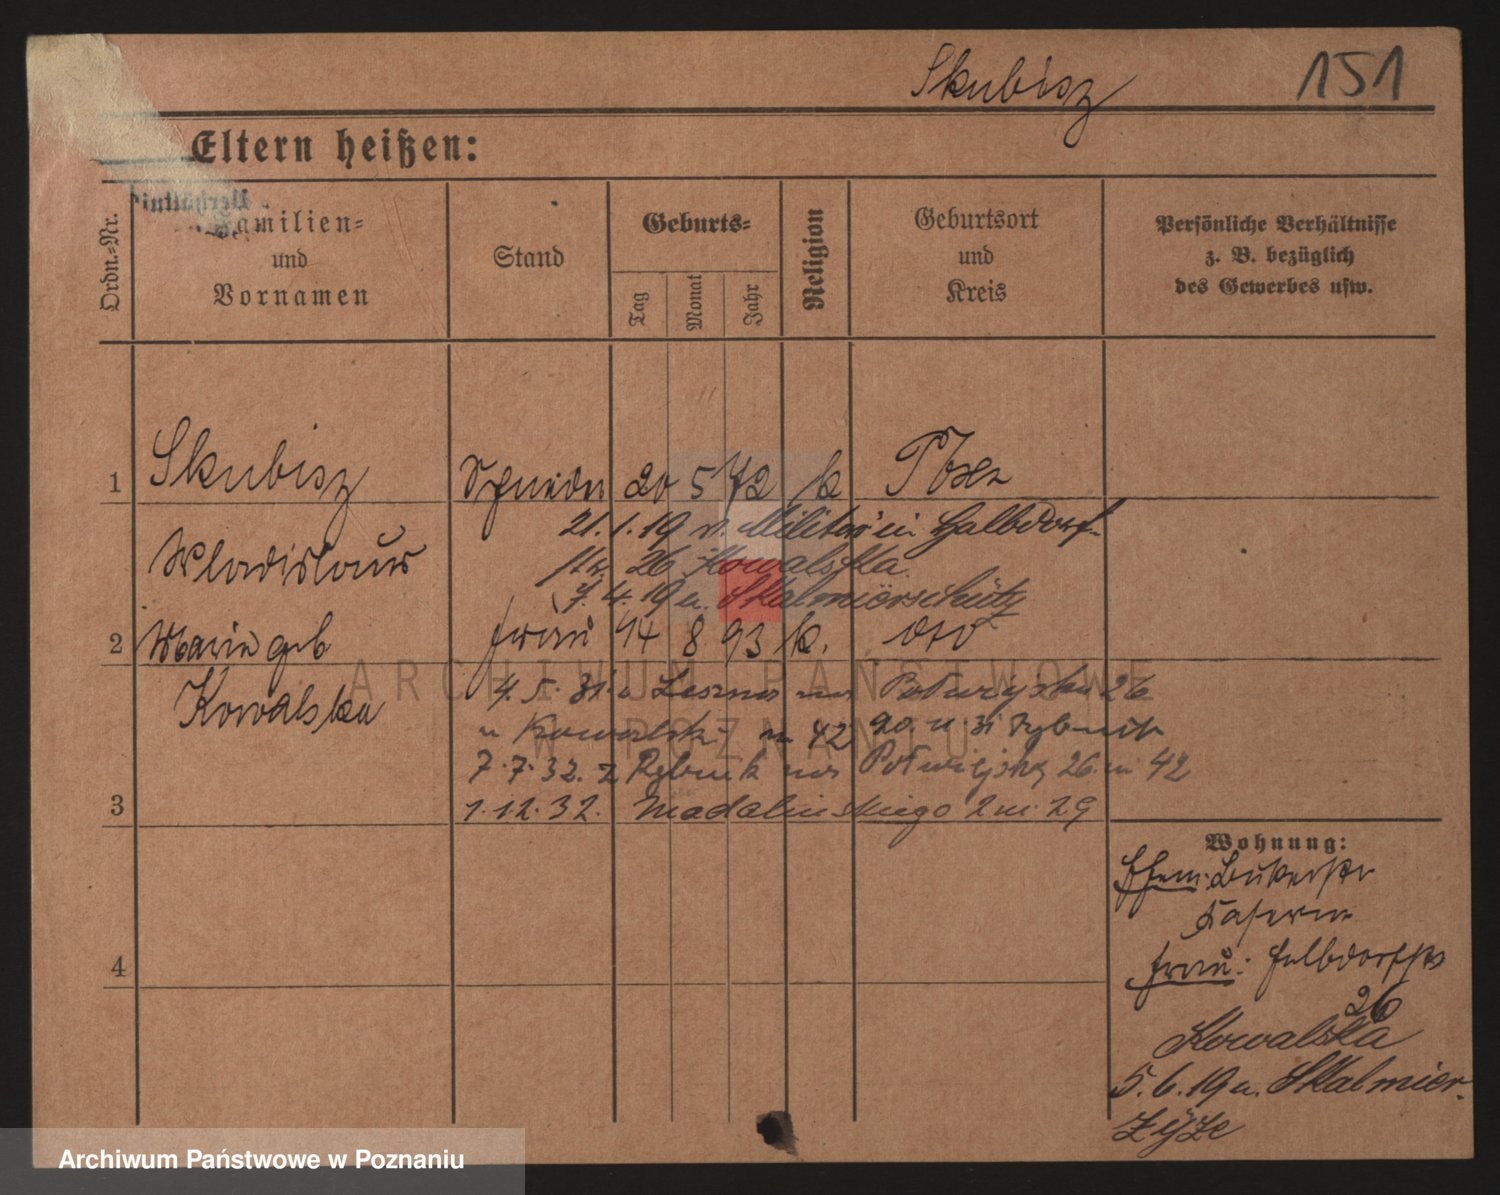 Skubisz 151
Eltern heißen:
Ordn.-Nr.
Familien-
und
Vornamen
Stand
Geburts-
Tag
Monat
Jahr
Religion
Geburtsort
und
Kreis
Persönliche Verhältnisse
z. B. bezüglich
des Gewerbes usw.
1 Skubisz 20 5 72 k Posen
21.1.19 v. Militär in Halbdorf-
Wladislaus
str. 26 Kowalska
7.4.19 n. Skalmierschütz
2 Maria geb Frau 14 8 93 k. dto
Kowalska
4.5.31. Leszno Półwiejska 26
u Kowalski m 42 20. 11 31 Rybnik
7.7.32. z Rybnik Półwiejską 26 m 42
3 1.12.32. Madalińskiego 2 m. 29
Wohnung:
Ehem: Bukerstr
Kaserne
4
Frau: Halbdorfstr
26
Kowalska
5.6.19 n. Skalmier-
zyze
ARCHIWUM PAŃSTWOWE
W POZNANIU
Archiwum Państwowe w Poznaniu